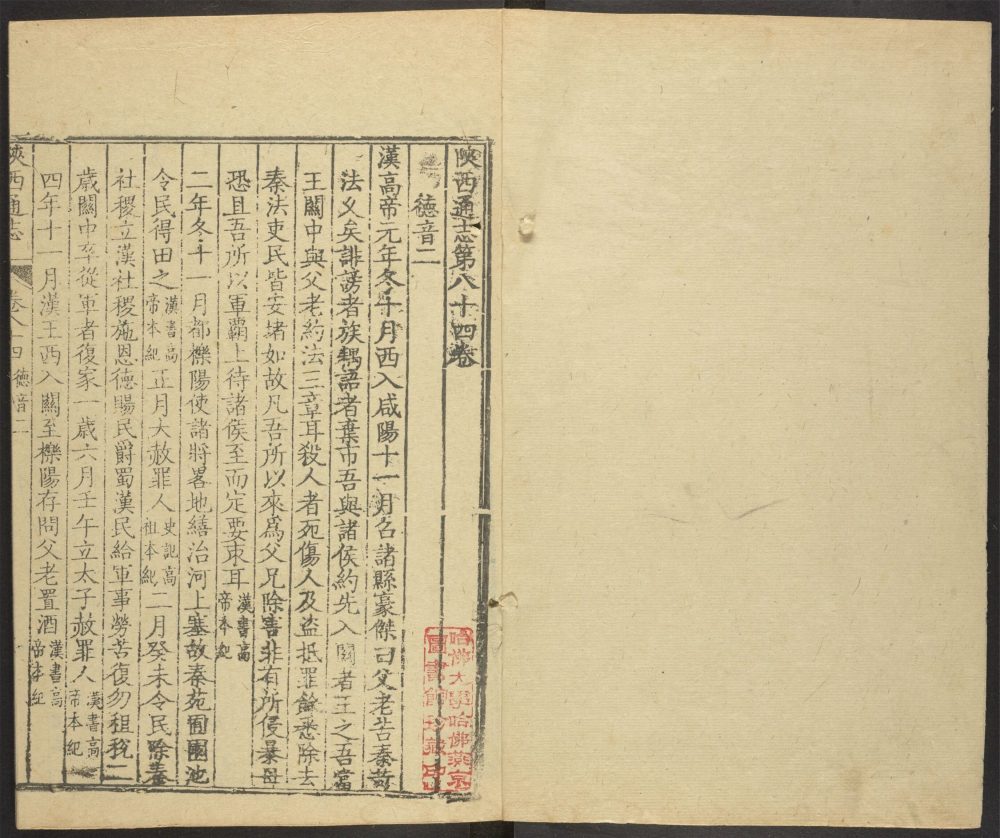 陝西通志第八十四卷
德音二
漢高帝元年冬十月西入咸陽十一月召諸縣豪傑曰父老苦秦苛
法乆矣誹謗者族耦語者棄市吾與諸侯約先入關者王之吾當
王關中與父老約法三章耳殺人者死傷人及盜抵罪餘悉除去
秦法吏民皆安堵如故凡吾所以來爲父兄除害非有所侵暴毋
恐且吾所以軍霸上待諸侯至而定要束耳漢書高帝本紀
二年冬十一月都櫟陽使諸將畧地繕治河上塞故秦苑囿園池
令民得田之漢書高帝本紀正月大赦罪人史記高祖本紀二月癸未令民除秦
社稷立漢社稷施恩德賜民爵蜀漢民給軍事勞苦復勿租稅二
歲關中卒從軍者復家一歲六月壬午立太子赦罪人漢書高帝本紀
四年十一月漢王西入關至櫟陽存問父老置酒漢書高帝本紀
陝西通志
卷八十四德音二
哈佛大學哈佛燕京
圖書館珍藏印